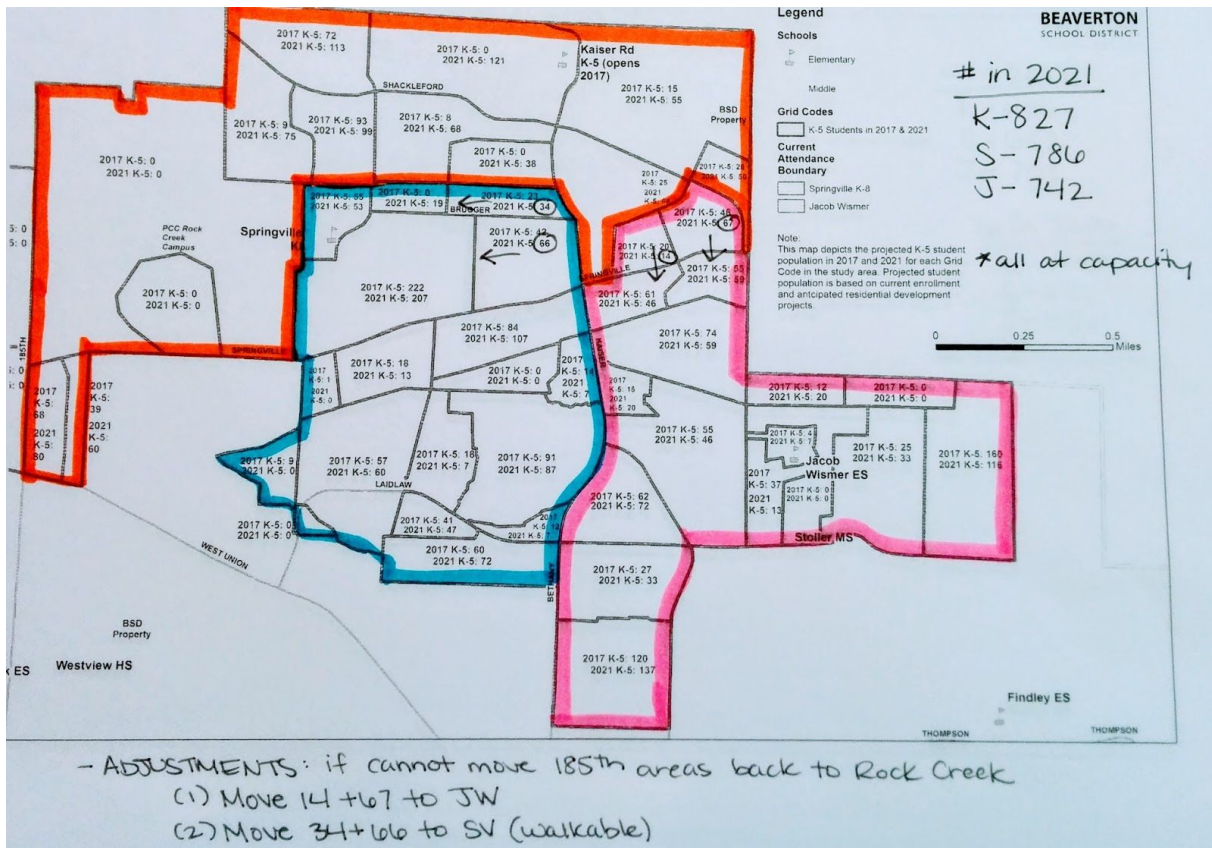 Legend
Schools
Elementary
Middle
Grid Codes
K-5 Students in 2017 & 2021
Current
Attendance
Boundary
Springville K-8
Jacob Wismer
Note:
This map depicts the projected K-5 student
population in 2017 and 2021 for each Grid
Code in the study area. Projected student
population is based on current enrollment
and antcipated residential development
projects.
0 0.25 0.5
Miles
BEAVERTON
SCHOOL DISTRICT
# in 2021
K-827
S-786
J-742
*all at capacity
2017 K-5: 72
2021 K-5: 113
2017 K-5: 0
2021 K-5: 121
Kaiser Rd
K-5 (opens
2017)
2017 K-5: 15
2021 K-5: 55
SHACKLEFORD
BSD
Property
2017 K-5: 9
2021 K-5: 75
2017 K-5: 93
2021 K-5: 99
2017 K-5: 8
2021 K-5: 68
2017 K-5: 0
2021 K-5: 38
2017 K-5: 0
2021 K-5: 0
2017
K-5: 25
2021
2017 K-5: 0
2021 K-5: 19
2021 K-5: 53
BRUGGER
2021 K-5: 34
2021 K-5: 66
2021 K-5: 67
2021 K-5: 14
PCC Rock
Creek
Campus
Springville
2017 K-5: 0
2021 K-5: 0
2017 K-5: 222
2021 K-5: 207
SPRINGVILLE
2017 K-5: 61
2021 K-5: 46
2017 K-5: 55
2021 K-5: 59
2017 K-5: 84
2021 K-5: 107
2017 K-5: 74
2021 K-5: 59
KAISER
185TH
SPRINGVILLE
2017
K-5: 1
2021
K-5: 0
2017 K-5: 18
2021 K-5: 13
2017 K-5: 0
2021 K-5: 0
2017
K-5: 14
2021
K-5: 7
2017
K-5: 15
2021
K-5: 20
2017 K-5: 12
2021 K-5: 20
2017 K-5: 0
2021 K-5: 0
2017
K-5:
68
2021
K-5:
80
2017
K-5:
39
2021
K-5:
60
2017 K-5: 55
2021 K-5: 46
2017 K-5: 4
2021 K-5: 7
Jacob
Wismer ES
2017 K-5: 25
2021 K-5: 33
2017 K-5: 160
2021 K-5: 116
2017 K-5: 9
2021 K-5: 0
2017 K-5: 57
2021 K-5: 60
2017 K-5: 18
2021 K-5: 7
2017 K-5: 91
2021 K-5: 87
2017
K-5: 37
2021
K-5: 13
2017 K-5: 0
2021 K-5: 0
LAIDLAW
2017 K-5: 62
2021 K-5: 72
2017 K-5: 0
2021 K-5: 0
2017 K-5: 41
2021 K-5: 47
Stoller MS
WEST UNION
2017 K-5: 60
2021 K-5: 72
2017 K-5: 27
2021 K-5: 33
BSD
Property
Westview HS
ES
2017 K-5: 120
2021 K-5: 137
Findley ES
THOMPSON THOMPSON
- ADJUSTMENTS: if cannot move 185th areas back to Rock Creek
(1) Move 14+67 to JW
(2) Move 34+66 to SV (walkable)